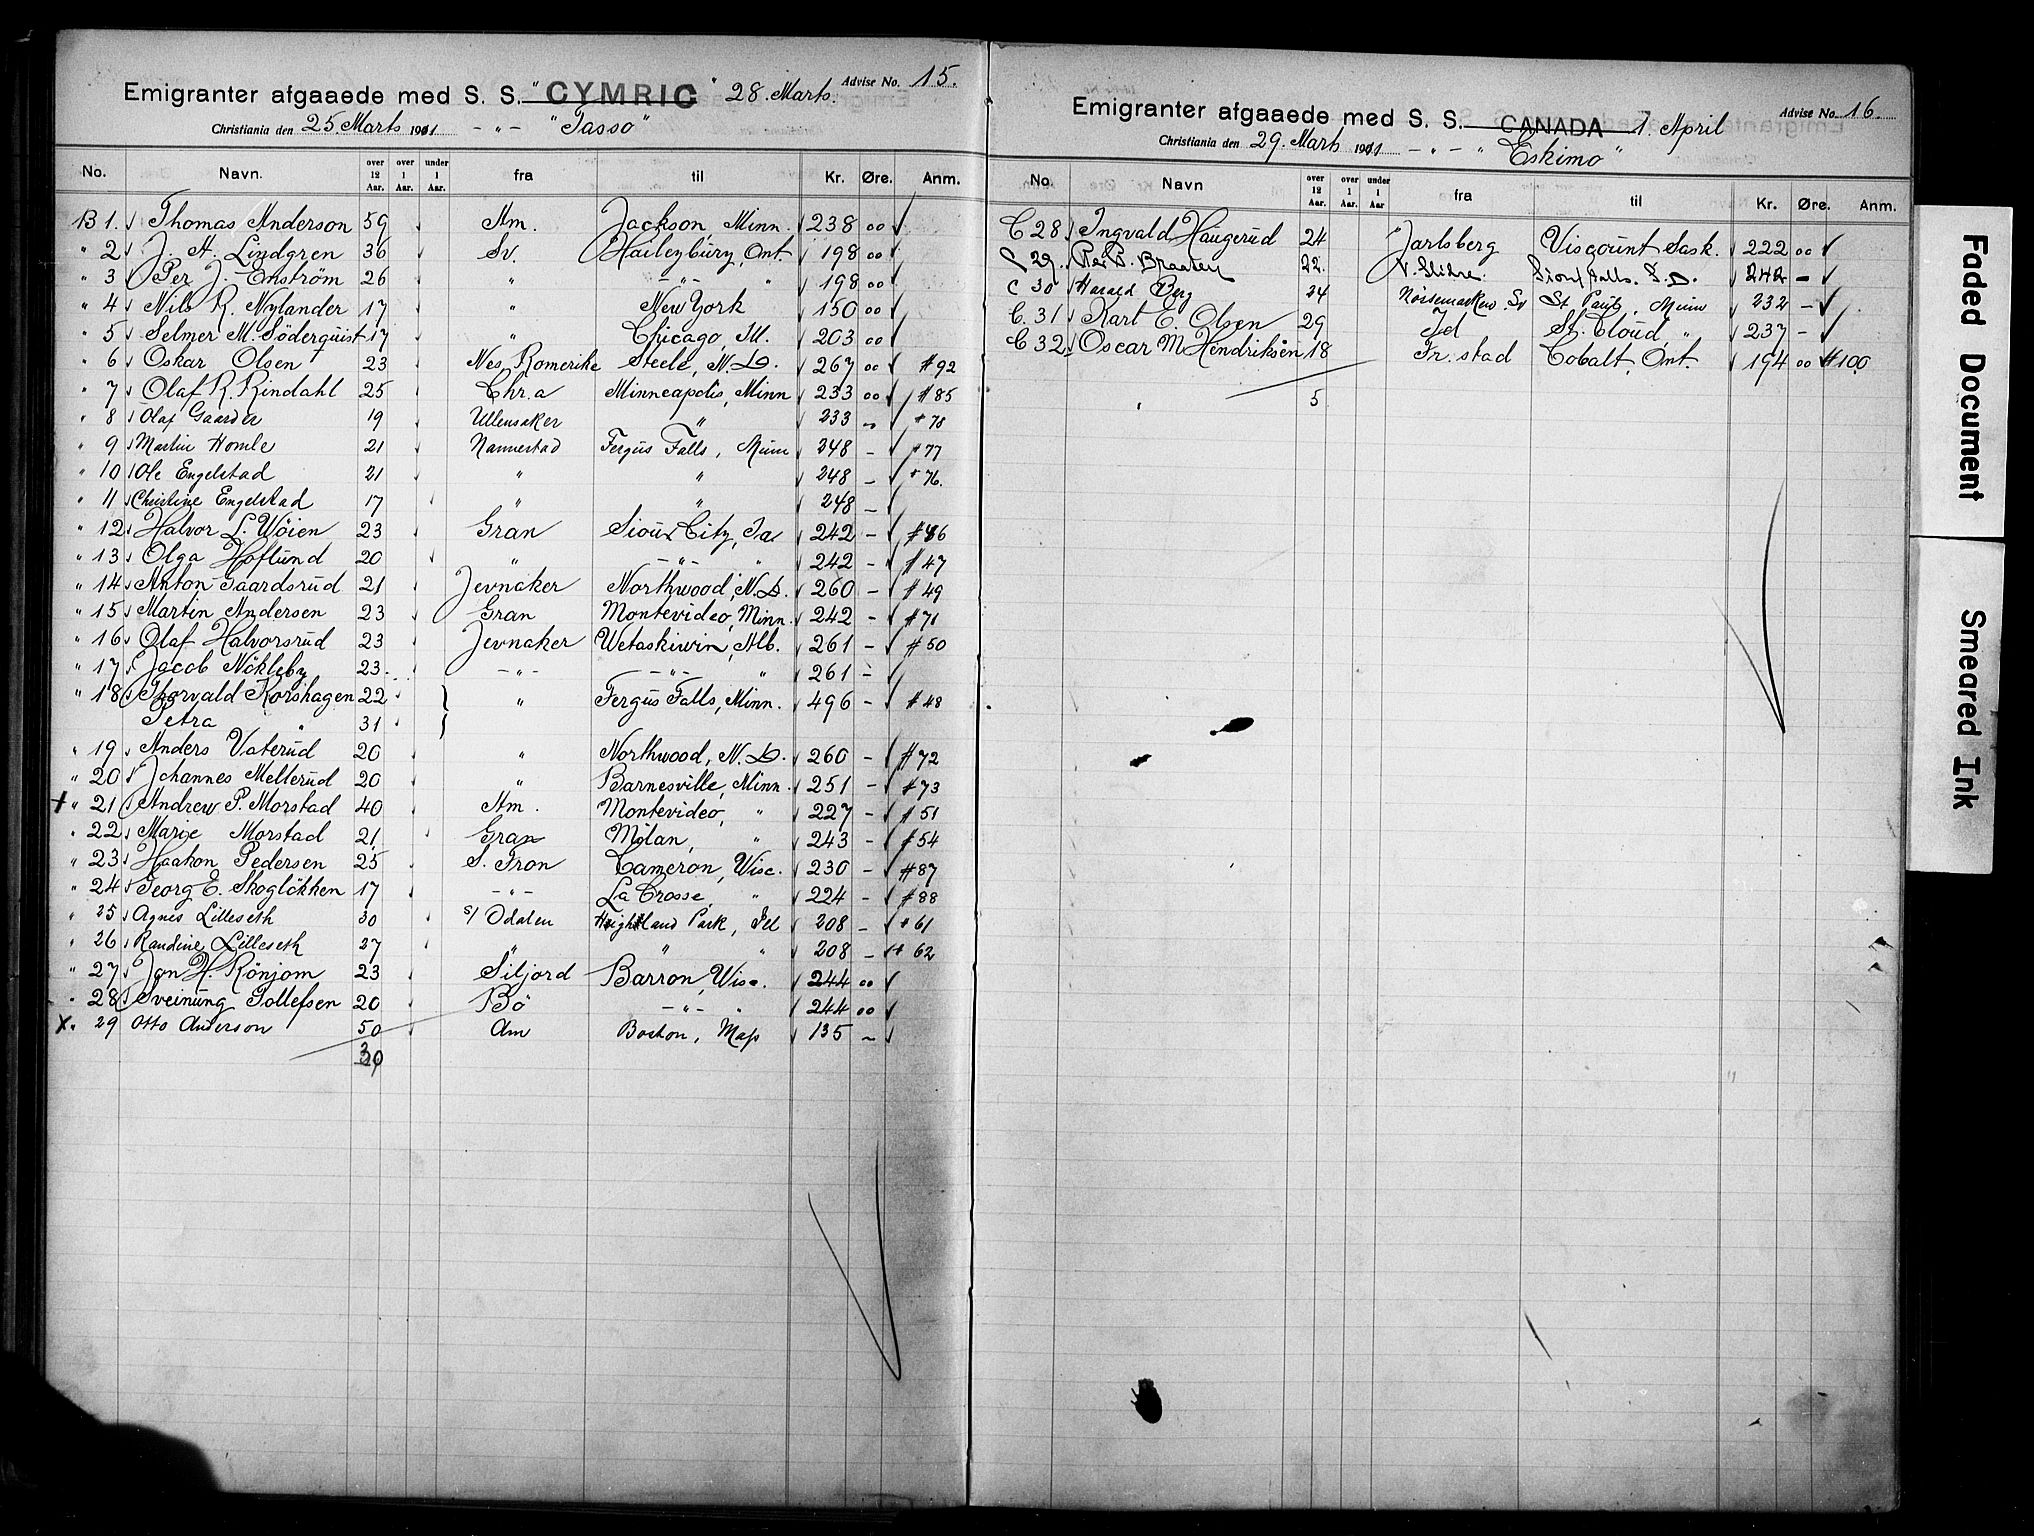 Emigranter afgaaede med S. S. "CYMRIC" 28. Marts. Advise No. 15.
Christiania den 25. Marts 1911 - " - "Tasso"
No. Navn. over 12 Aar. over 1 Aar. under 1 Aar. fra til Kr. Øre. Anm.
B 1. Thomas Anderson 59 Am. Jackson, Minn. 238 00
" 2 J. A. Lindgren 36 Sv. Haileybury, Ont. 198 00
" 3 Per J. Enström 26 " - " - " 198 00
" 4 Nils R. Nylander 17 " New York 150 00
" 5 Selmer M. Söderquist 17 " Chicago, Ill. 203 00
" 6 Oskar Olsen 23 Nes, Romerike Steele, N.D. 267 00 #92
" 7 Olaf R. Rindahl 25 Chr.a Minneapolis, Minn 233 00 #85
" 8 Olaf Gaarder 19 Ullensaker " 233 - #78
" 9 Martin Homle 21 Nannestad Fergus Falls, Minn 248 - #77
" 10 Ole Engelstad 21 " " 248 - #76.
" 11 Christine Engelstad 17 " " 248 -
" 12 Halvor L. Wöien 23 Gran Sioux City, Ia 242 - #46
" 13 Olga Hoflund 20 " - " - " 242 - #47
" 14 Anton Gaardsrud 21 Jevnaker Northwood, N.D. 260 - #49
" 15 Martin Andersen 23 Gran Montevideo, Minn. 242 - #71
" 16 Olaf Halvorsrud 23 Jevnaker Wetaskiwin, Alb. 261 - #50
" 17 Jacob Nökleby 23. - " - - " - " 261 -
" 18 Thorvald Korshagen 22 " Fergus Falls, Minn. 496 - #48
Petra " 31
" 19 Anders Vaterud 20 " Northwood, N.D. 260 - #72
" 20 Johannes Mellerud 20 " Barnesville, Minn. 251 - #73
+ " 21 Andrew P. Morstad 40 Am. Montevideo, " 227 - #51
" 22 Marie Morstad 21 Gran Milan, " 243 - #54
" 23 Haakon Pedersen 25 S. Fron Cameron, Wisc. 230 - #87
" 24 Georg E. Skoglökken 17 - " - La Crosse, " 224 - #88
" 25 Agnes Lilleseth 30 S/ Odalen Highland Park, Ill 208 - #61
" 26 Randine Lilleseth 27 " " " 208 - #62
" 27 Jon H. Rönjom 23 Siljord Barron, Wisc. 244 00
" 28 Sveinung Tollefsen 20 Bö - " - " 244 00
X " 29 Otto Anderson 50 Am Boston, Mass 135 -
30
Emigranter afgaaede med S. S. CANADA 1 April Advise No. 16.
Christiania den 29. Marts 1911 - " - "Eskimo"
No. Navn over 12 Aar. over 1 Aar. under 1 Aar fra til Kr. Øre. Anm.
C 28 Ingvald Haugerud 24 Jarlsberg Viscount Sask. 222 00
C 29. Per B. Braaten 22. V. Slidre. Sioux falls. S.D. 242 -
C 30 Harald Berg 24 Nössemarken Sv St. Paul, Minn 232 -
C. 31 Karl E. Olsen 29 Id St. Cloud, " 237 -
C 32. Oscar M Hendriksen 18 Fr.stad Cobalt, Ont. 194 00 #100
5
Faded Document
Smeared Ink